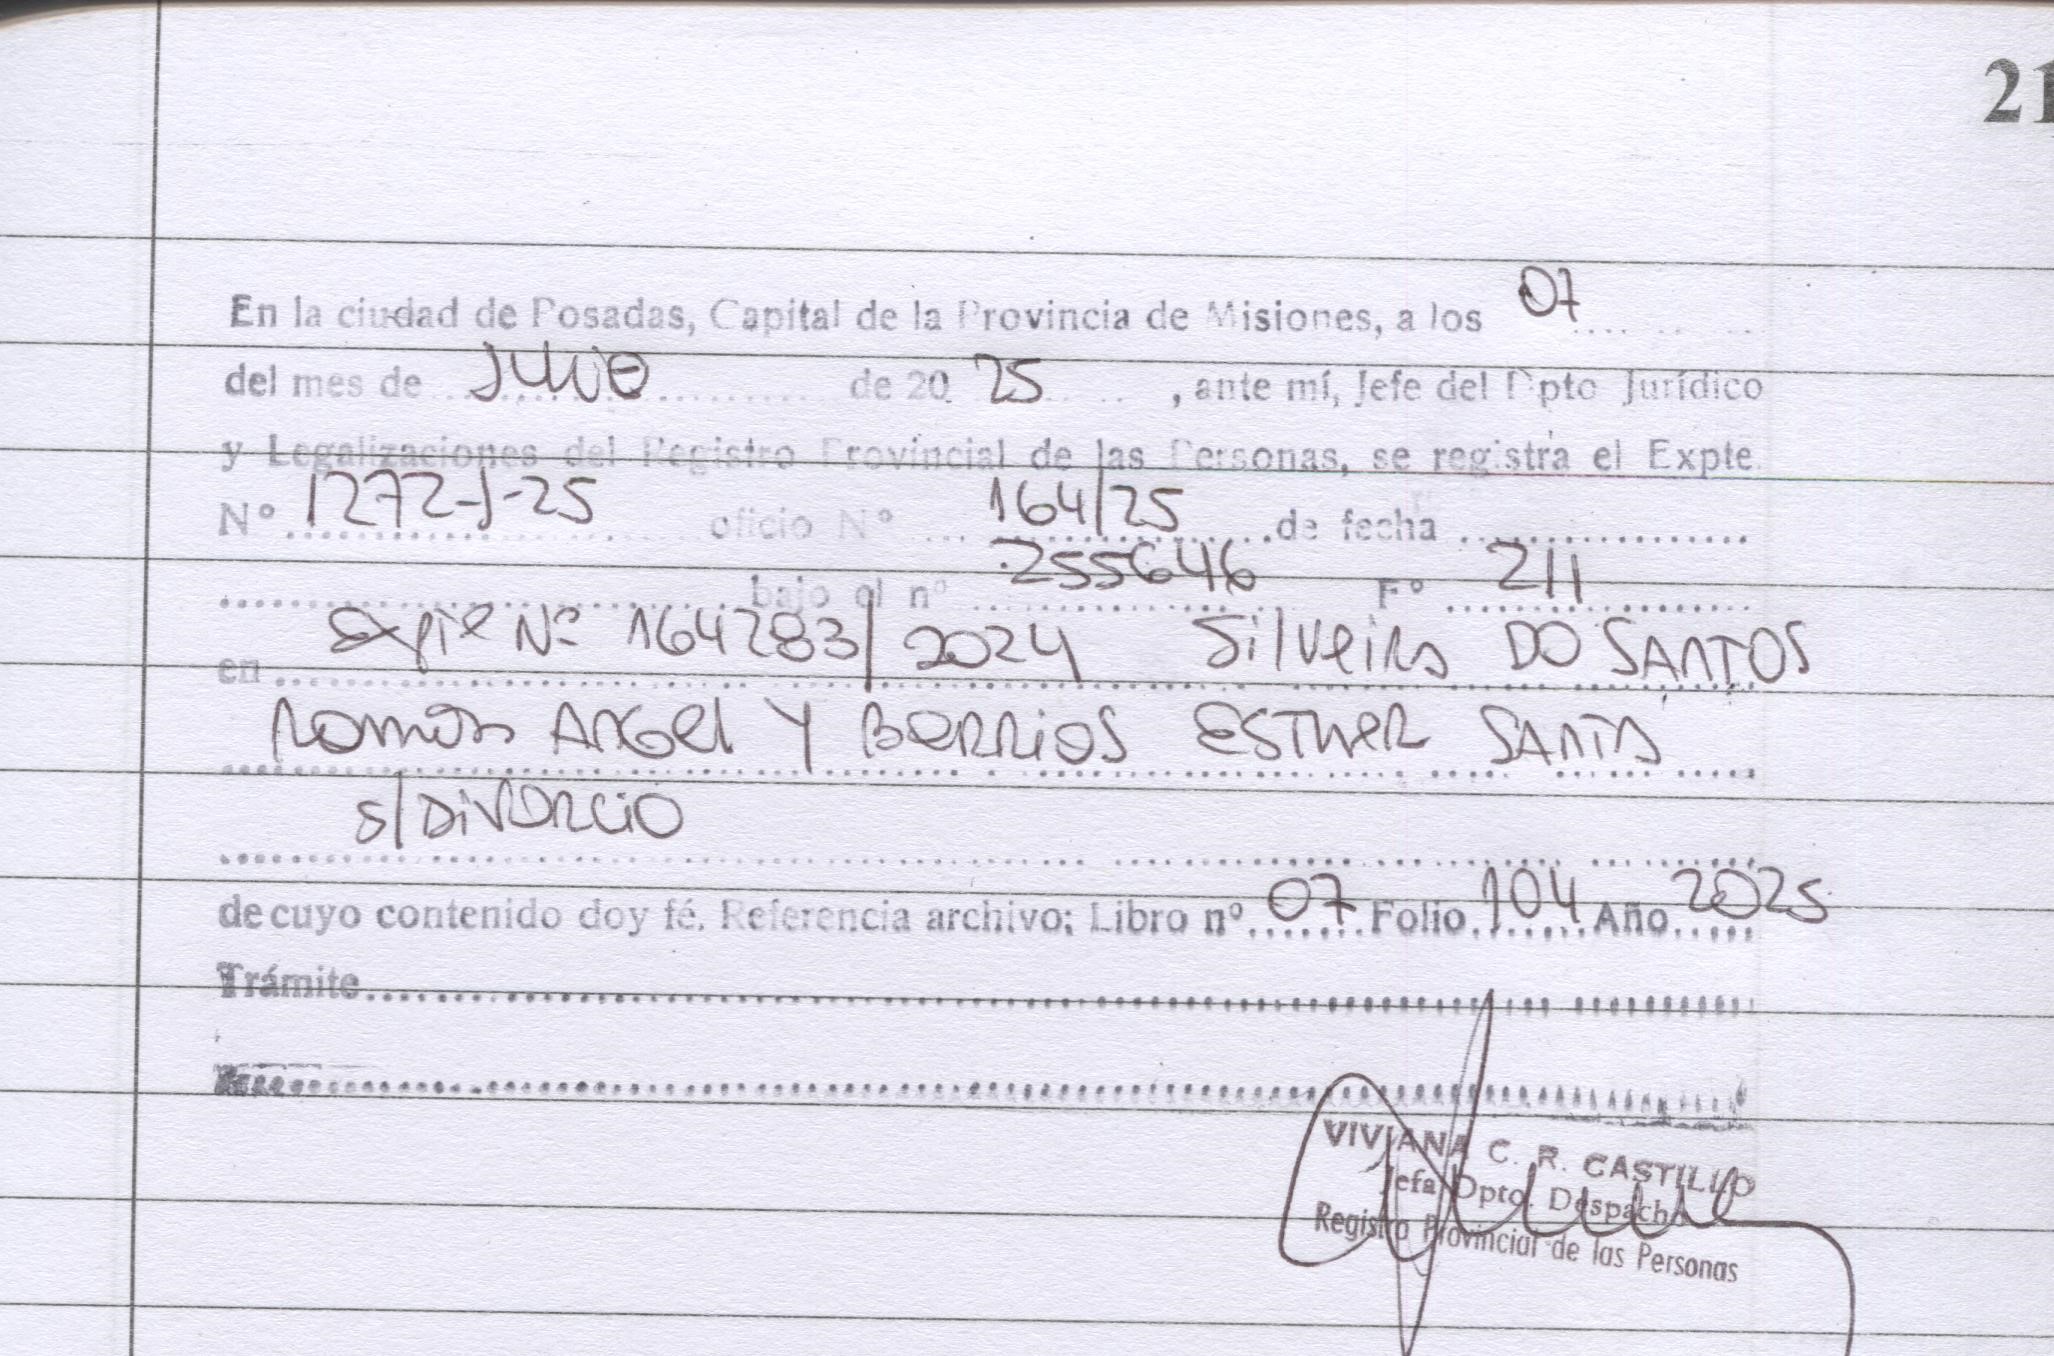 21
En la ciudad de Posadas, Capital de la Provincia de Misiones, a los 07
del mes de JULIO de 20 25, ante mí, Jefe del Dpto Jurídico
y Legalizaciones del Registro Provincial de las Personas, se registra el Expte
N° 1272-J-25 oficio N° 164/25 de fecha
bajo el n° 255646 F° 211
en Expte Nº 164283/2024 Silveira DO SANTOS
Ramón Angel Y Berrios ESTHER SANTA
s/ Divorcio
de cuyo contenido doy fé. Referencia archivo; Libro nº 07 Folio 104 Año 2025
Trámite
VIVIANA C. R. CASTILLO
Jefa Dpto. Despacho
Registro Provincial de las Personas